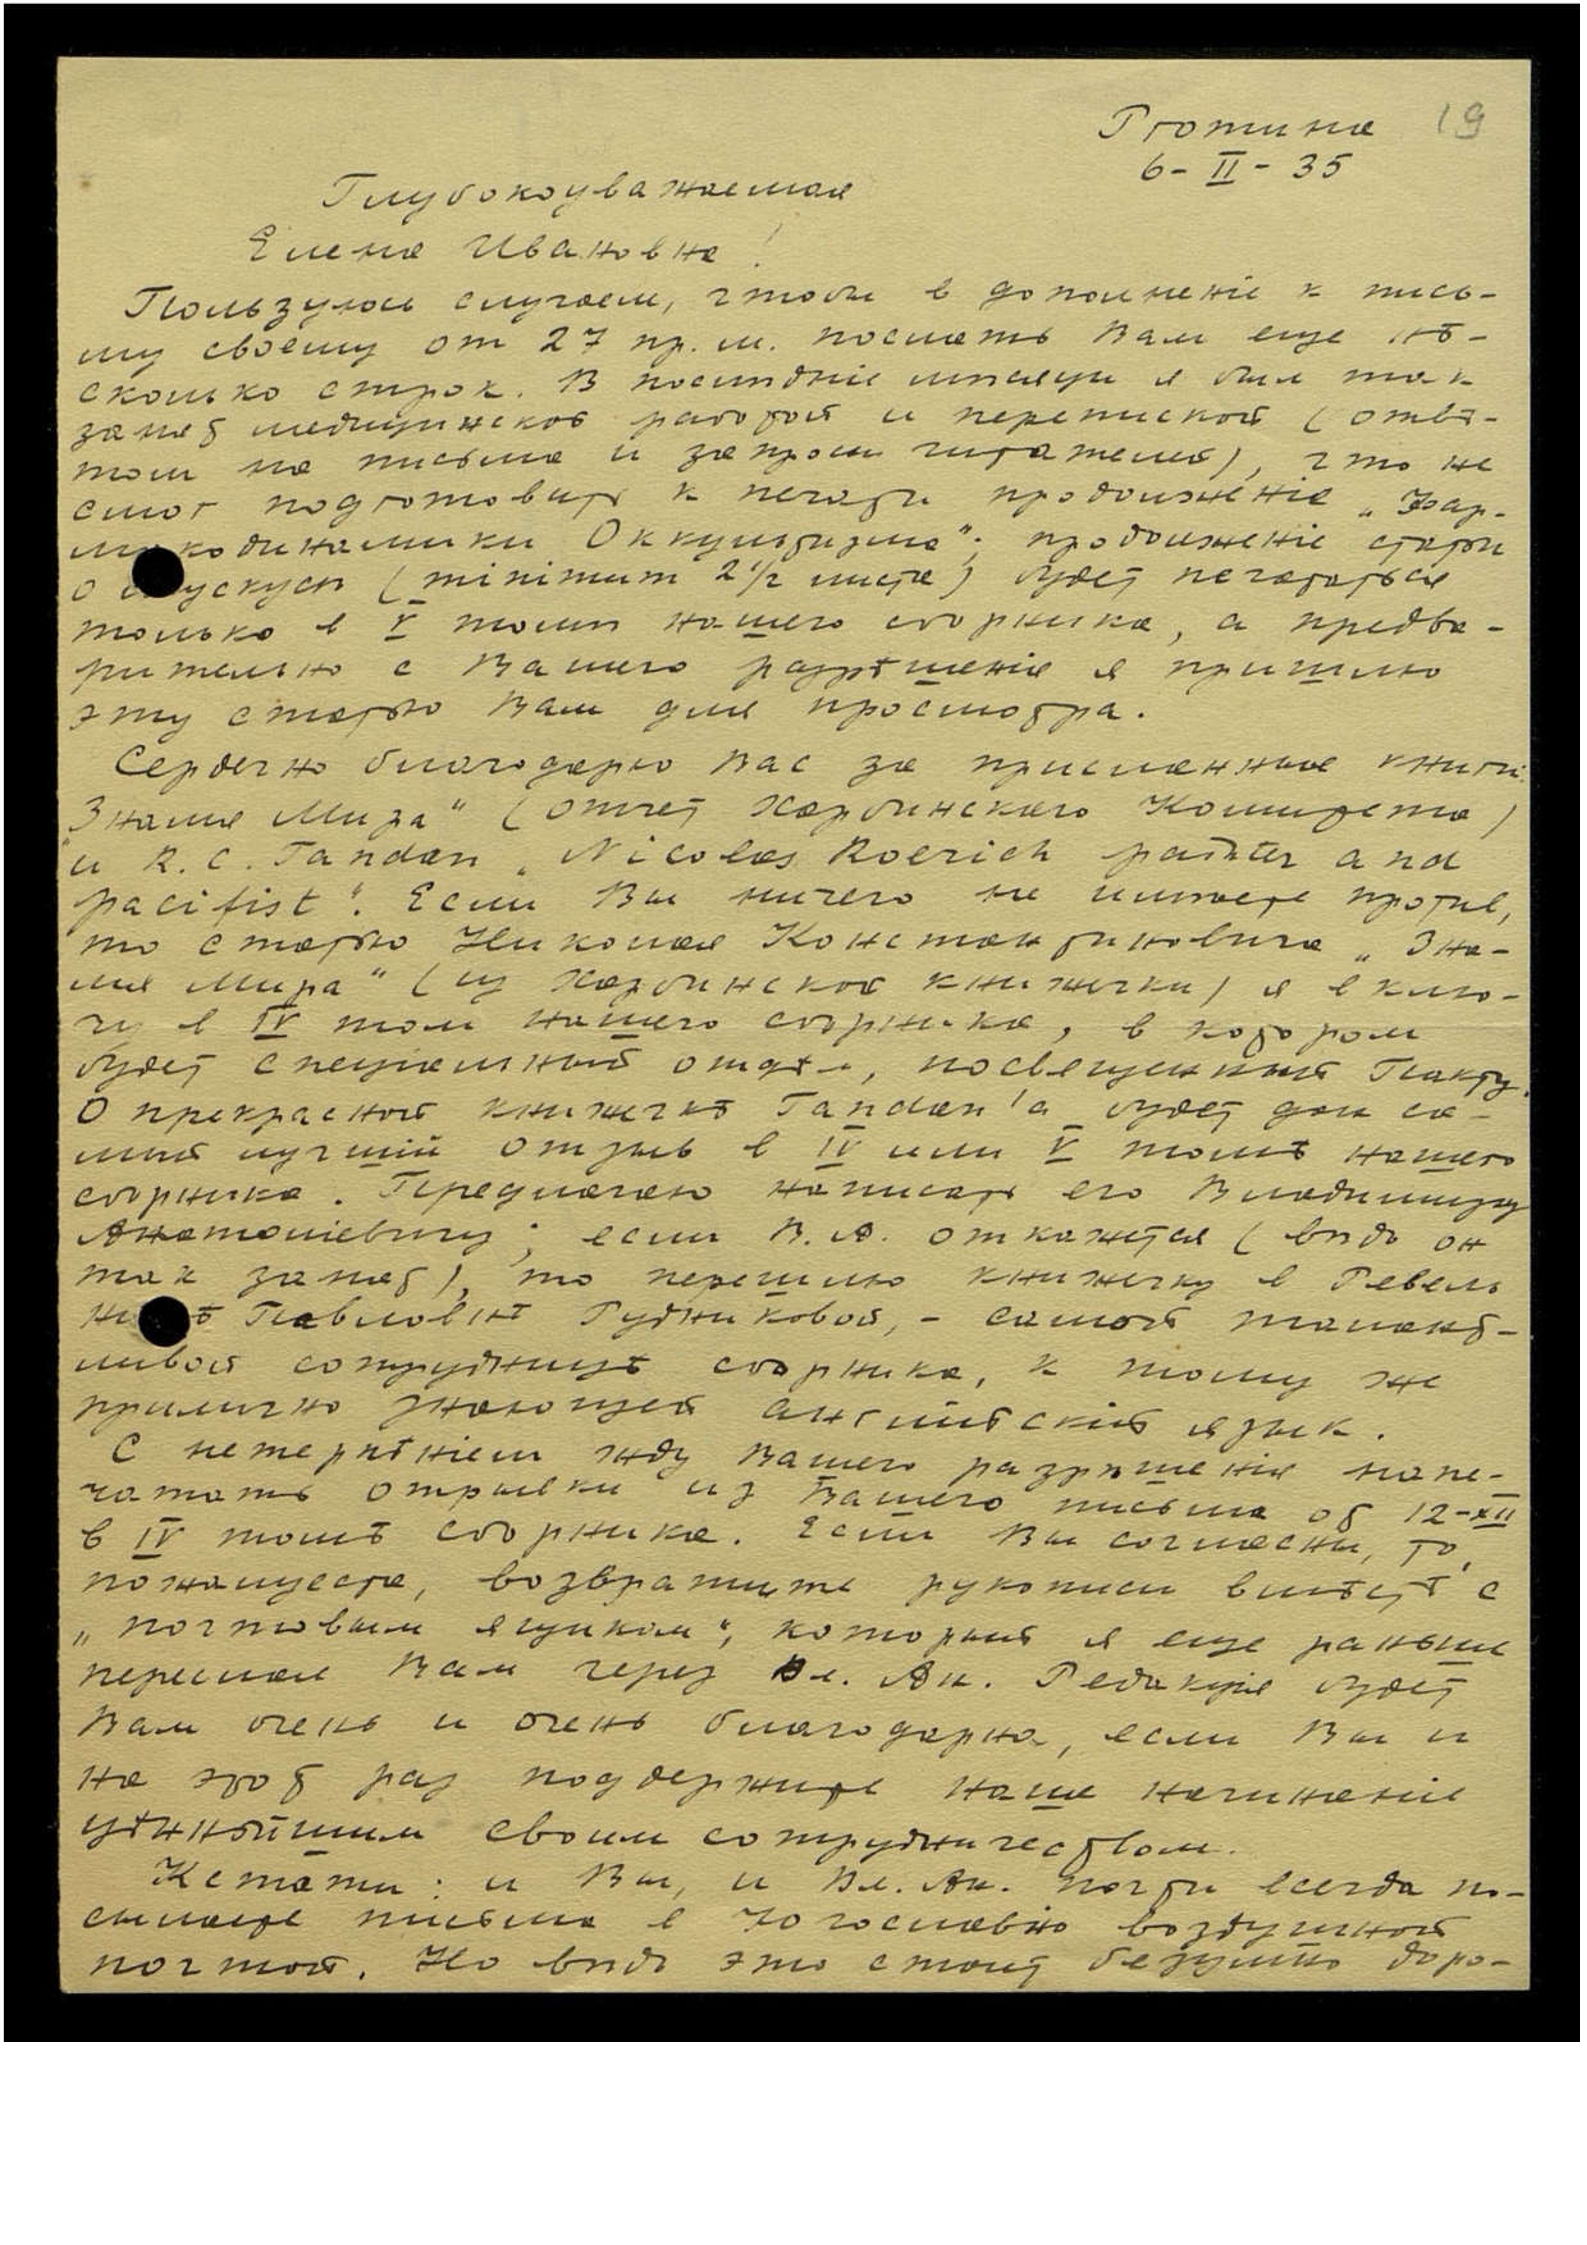 Рготина 19
6-II-35
Глубокоуважаемая
Елена Ивановна!
Пользуюсь случаем, чтобы в дополненіе к пись-
му своему от 27 пр. м. послать Вам еще нѣ-
сколько строк. В послѣдніе мѣсяцы я был так
занят медицинской работой и перепиской (отвѣ-
том на письма и запросы читателей), что не
смог подготовить к печати продолженіе „Фар-
макодинамики Оккультизма“; продолженіе статьи
о мускусѣ (minimum 2½ листа) будет печататься
только в V томѣ нашего сборника, а предва-
рительно с Вашего разрѣшенія я пришлю
эту статью Вам для просмотра.
Сердечно благодарю Вас за присланныя книги:
„Знамя Мира“ (отчет Харбинскаго Комитета)
и R. C. Tandan „Nicolas Roerich painter and
pacifist“. Если Вы ничего не имѣете против,
то статью Николая Константиновича „Зна-
мя Мира“ (из Харбинской книжечки) я вклю-
чу в IV том нашего сборника, в котором
будет спеціальный отдѣл, посвященный Пакту.
О прекрасной книжечкѣ Tandan'а будет дан са-
мый лучшій отзыв в IV или V томѣ нашего
сборника. Предлагаю написать его Владиміру
Анатоліевичу; если В. А. откажется (вѣдь он
так занят), то перешлю книжечку в Ревель
Павловнѣ Рудниковой, - самой талант-
ливой сотрудницѣ сборника, к тому же
прилично знающей англійскій язык.
С нетерпѣніем жду Вашего разрѣшенія напе-
чатать отрывки из Вашего письма от 12-XII
в IV томѣ сборника. Если Вы согласны, то,
пожалуйста, возвратите рукописи вмѣстѣ с
„почтовым ящиком“, который я еще раньше
переслал Вам через Вл. Ан. Редакція будет
Вам очень и очень благодарна, если Вы и
на этот раз поддержите наше начинаніе
цѣннѣйшим своим сотрудничеством.
Кстати: и Вы, и Вл. Ан. почти всегда по-
сылаете письма в Югославію воздушной
почтой. Но вѣдь это стоит безумно доро-